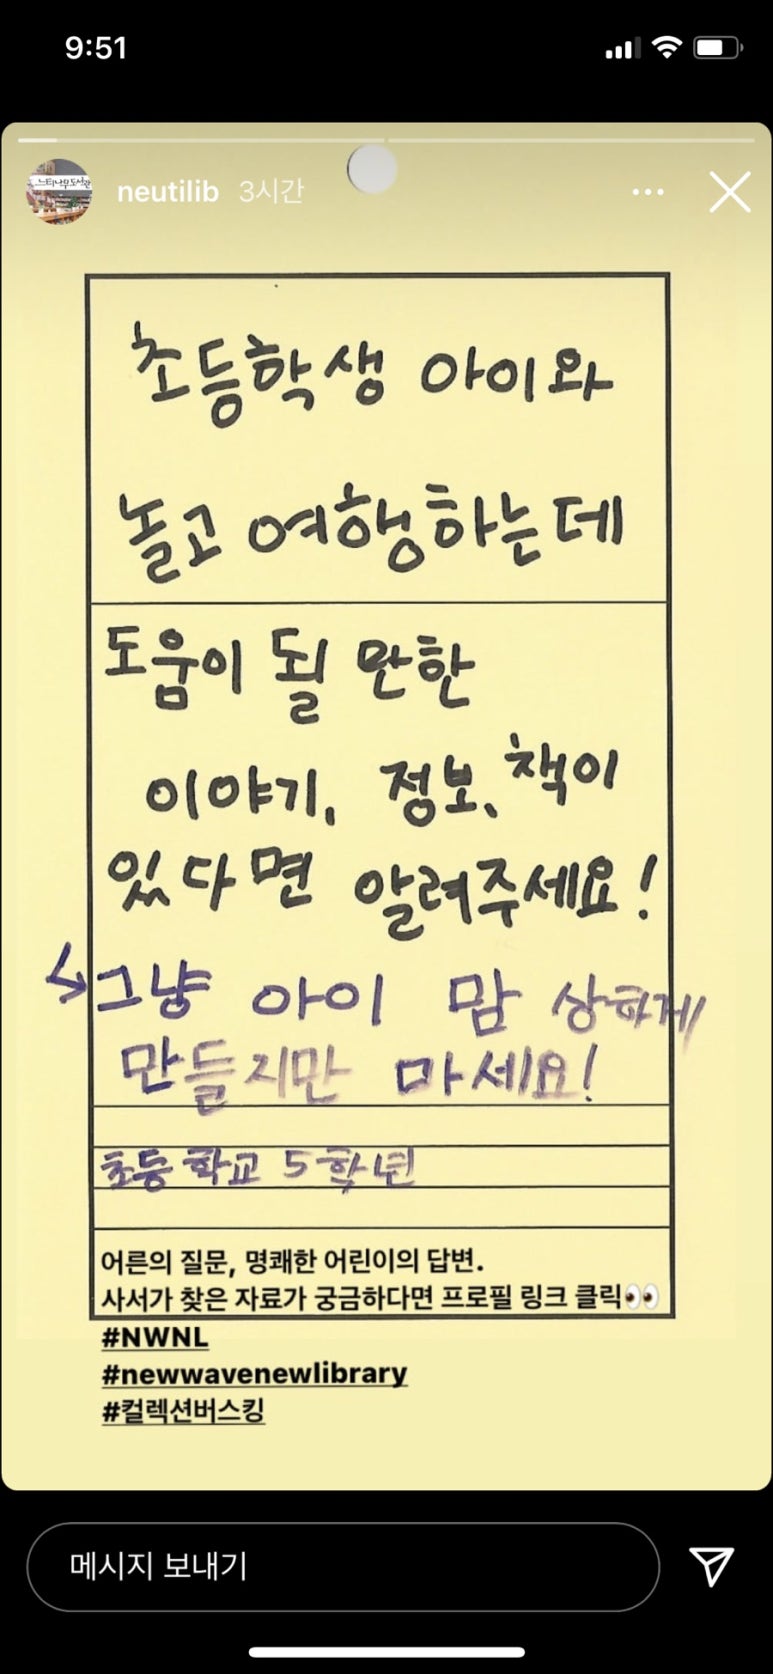 9:51
느티나무도서관
neutilib 3시간
초등학생 아이와
놀고 여행하는데
도움이 될 만한
이야기, 정보, 책이
있다면 알려주세요!
↳그냥 아이 맘 상하게
만들지만 마세요!
초등학교 5학년
어른의 질문, 명쾌한 어린이의 답변.
사서가 찾은 자료가 궁금하다면 프로필 링크 클릭👀
#NWNL
#newwavenewlibrary
#컬렉션버스킹
메시지 보내기